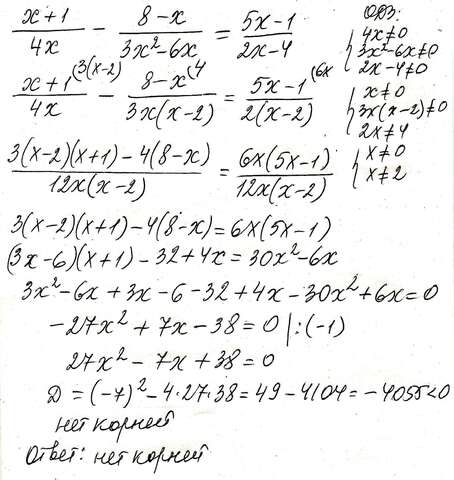 (x+1)/(4x) - (8-x)/(3x²-6x) = (5x-1)/(2x-4)
ОДЗ:
4x≠0
3x²-6x≠0
2x-4≠0
(x+1)/(4x) (3(x-2) - (8-x)/(3x(x-2)) (4 = (5x-1)/(2(x-2)) (6x
x≠0
3x(x-2)≠0
2x≠4
x≠0
x≠2
(3(x-2)(x+1)-4(8-x))/(12x(x-2)) = (6x(5x-1))/(12x(x-2))
3(x-2)(x+1)-4(8-x)=6x(5x-1)
(3x-6)(x+1)-32+4x=30x²-6x
3x²-6x+3x-6-32+4x-30x²+6x=0
-27x²+7x-38=0 |:(-1)
27x²-7x+38=0
D=(-7)²-4·27·38=49-4104=-4055<0
нет корней
Ответ: нет корней